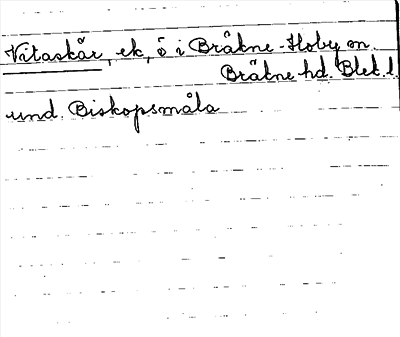 Vitaskär, ek, ö i Bräkne-Hoby sn.
Bräkne hd. Blek. l.
und. Biskopsmåla